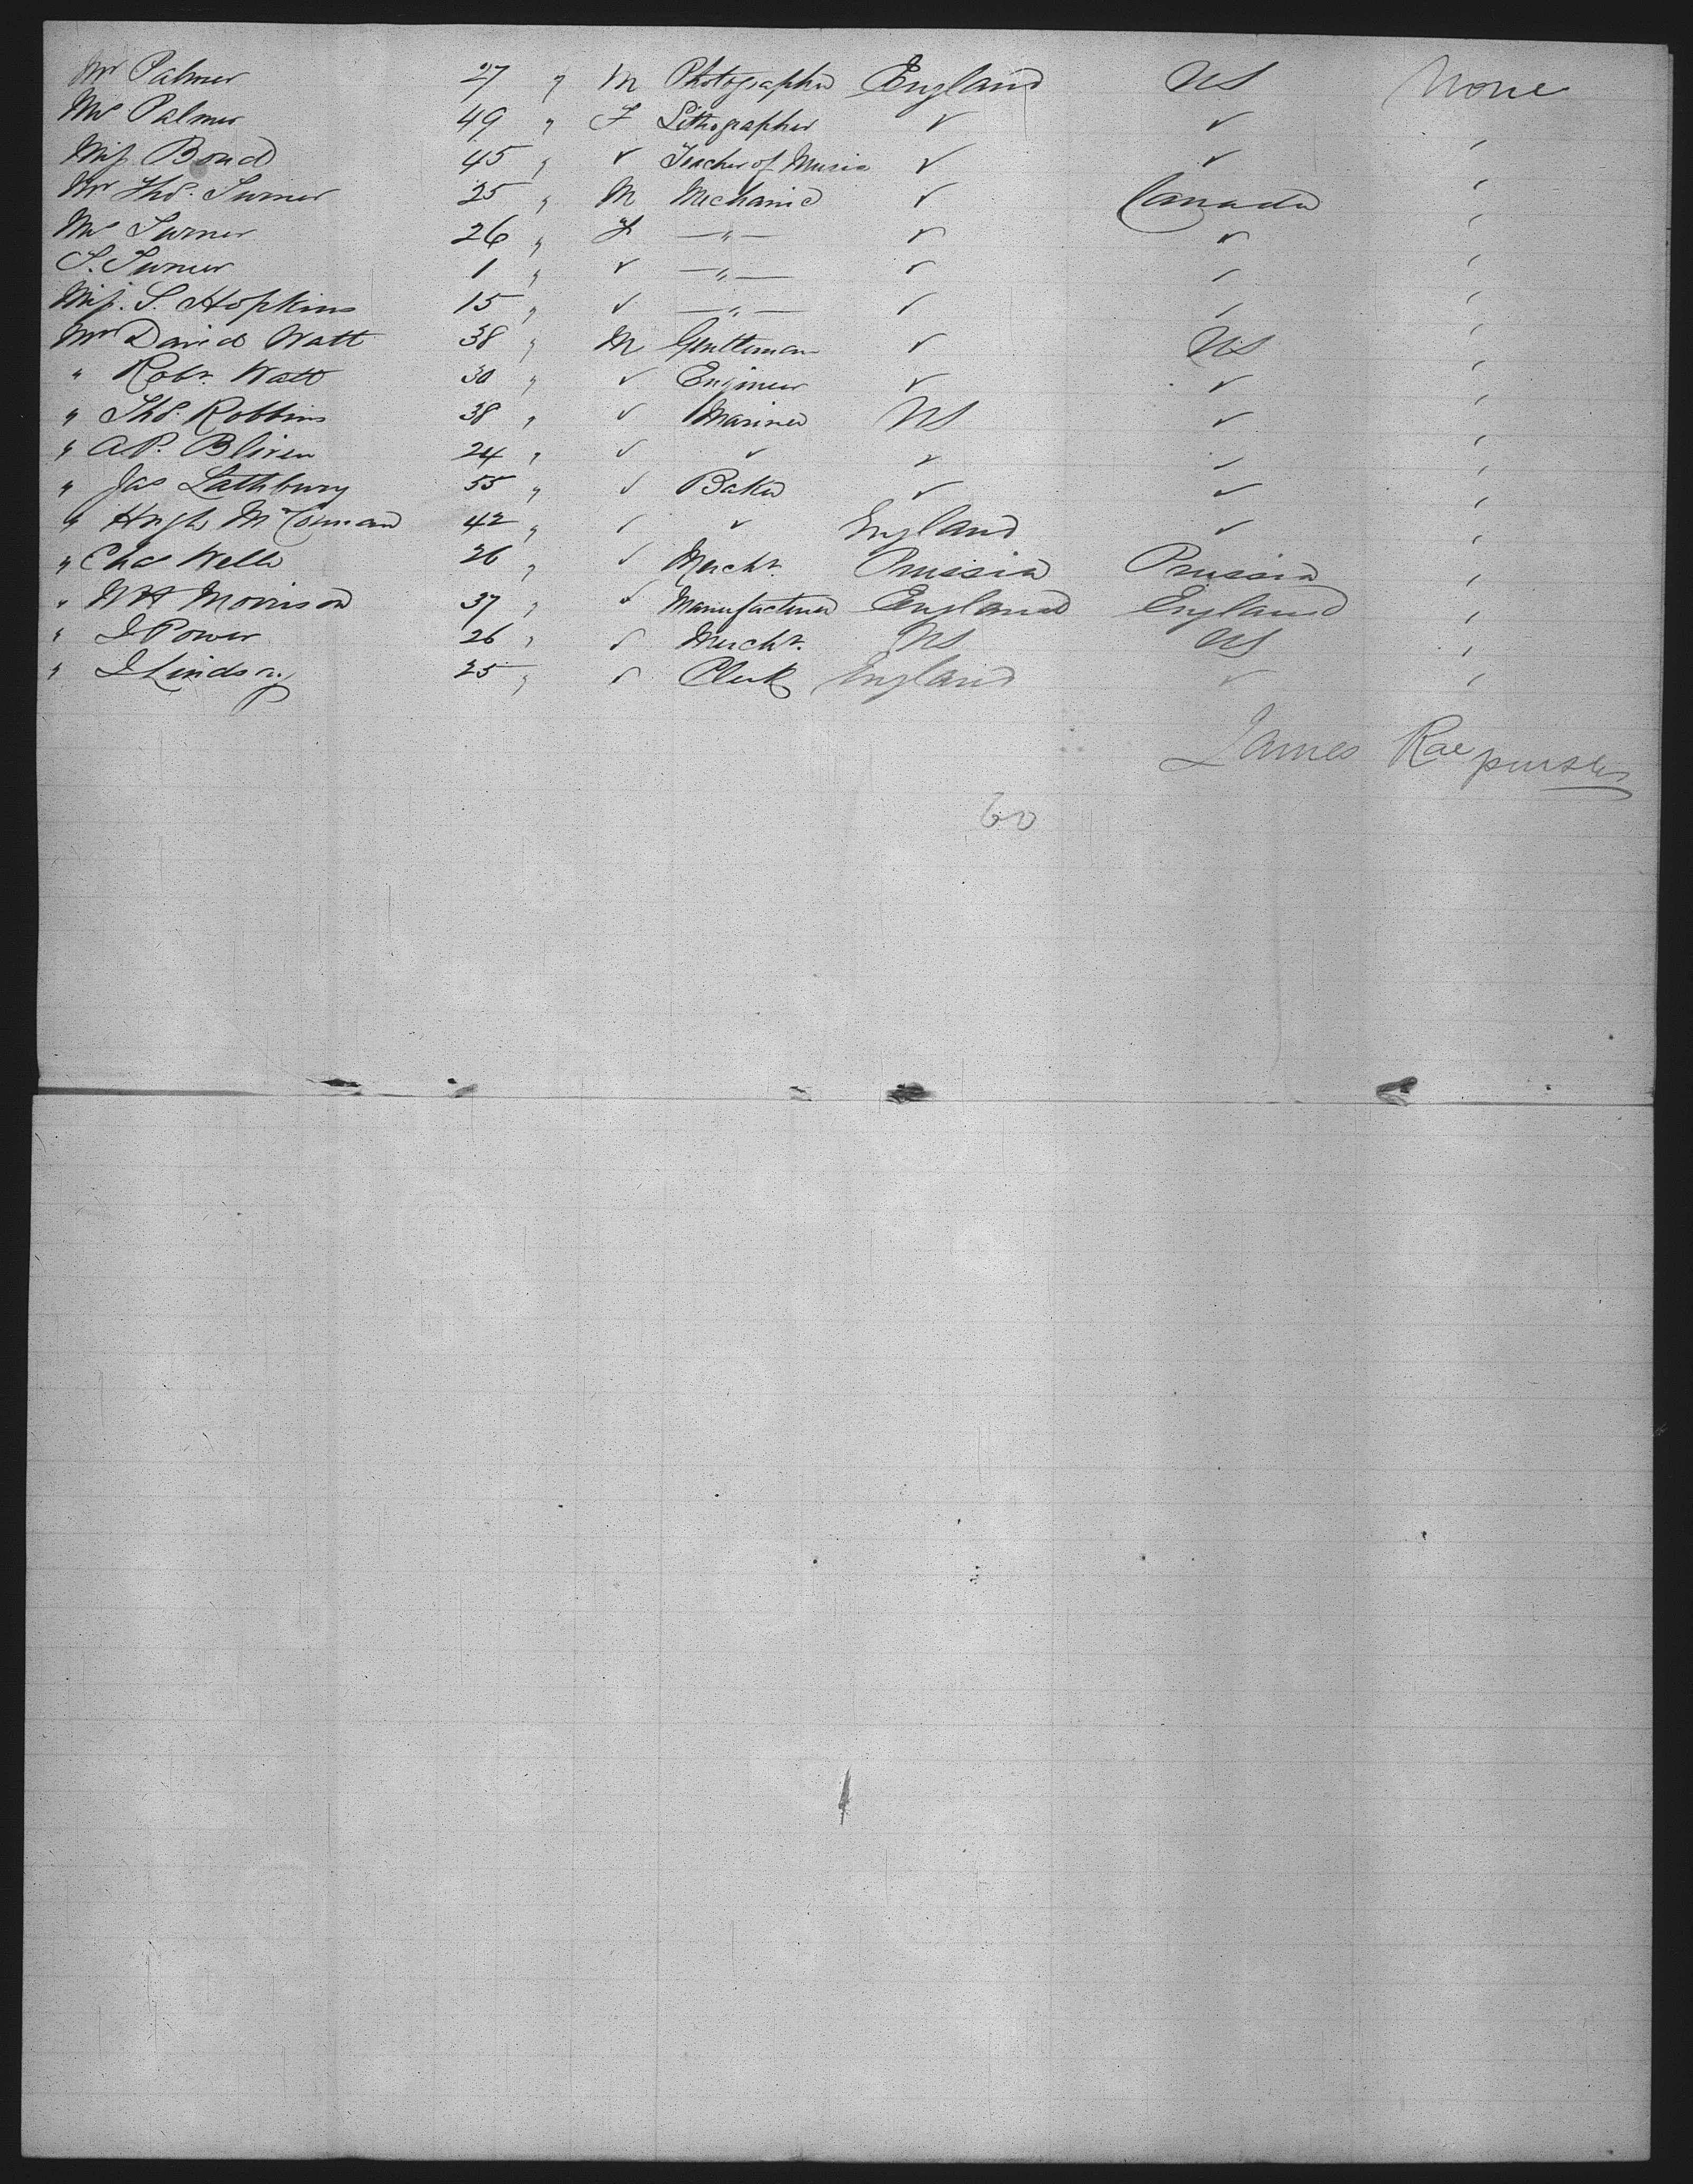 Mr Palmer 27 " M Photographer England US None
Mrs Palmer 49 " F Lithographer ✓ ✓ '
Miss Bond 45 " ✓ Teacher of Music ✓ ✓ '
Mr Thos. Turner 25 " M Mechanic ✓ Canada '
Mrs Turner 26 " F —"— ✓ ✓ '
S. Turner 1 " ✓ —"— ✓ ✓ '
Miss. S. Hopkins 15 " ✓ —"— ✓ ✓ '
Mr David Watt 38 " M Gentleman ✓ US '
" Robt. Watt 30 " ✓ Engineer ✓ ✓ '
" Thos. Robbins 38 " ✓ Mariner US ✓ '
" A.P. Bliven 24 " ✓ ✓ ✓ ✓ '
" Jas Lathbury 55 " ✓ Baker ✓ ✓ '
" Hugh 42 " ✓ ✓ England ✓ '
" Chas Wells 26 " ✓ Mercht. Prussia Prussia '
" WH Morrison 37 " ✓ Manufacturer England England '
" J Power 26 " ✓ Mercht. US US '
" J Lindsay 25 " ✓ Clerk England ✓ '
James Rae purser
60